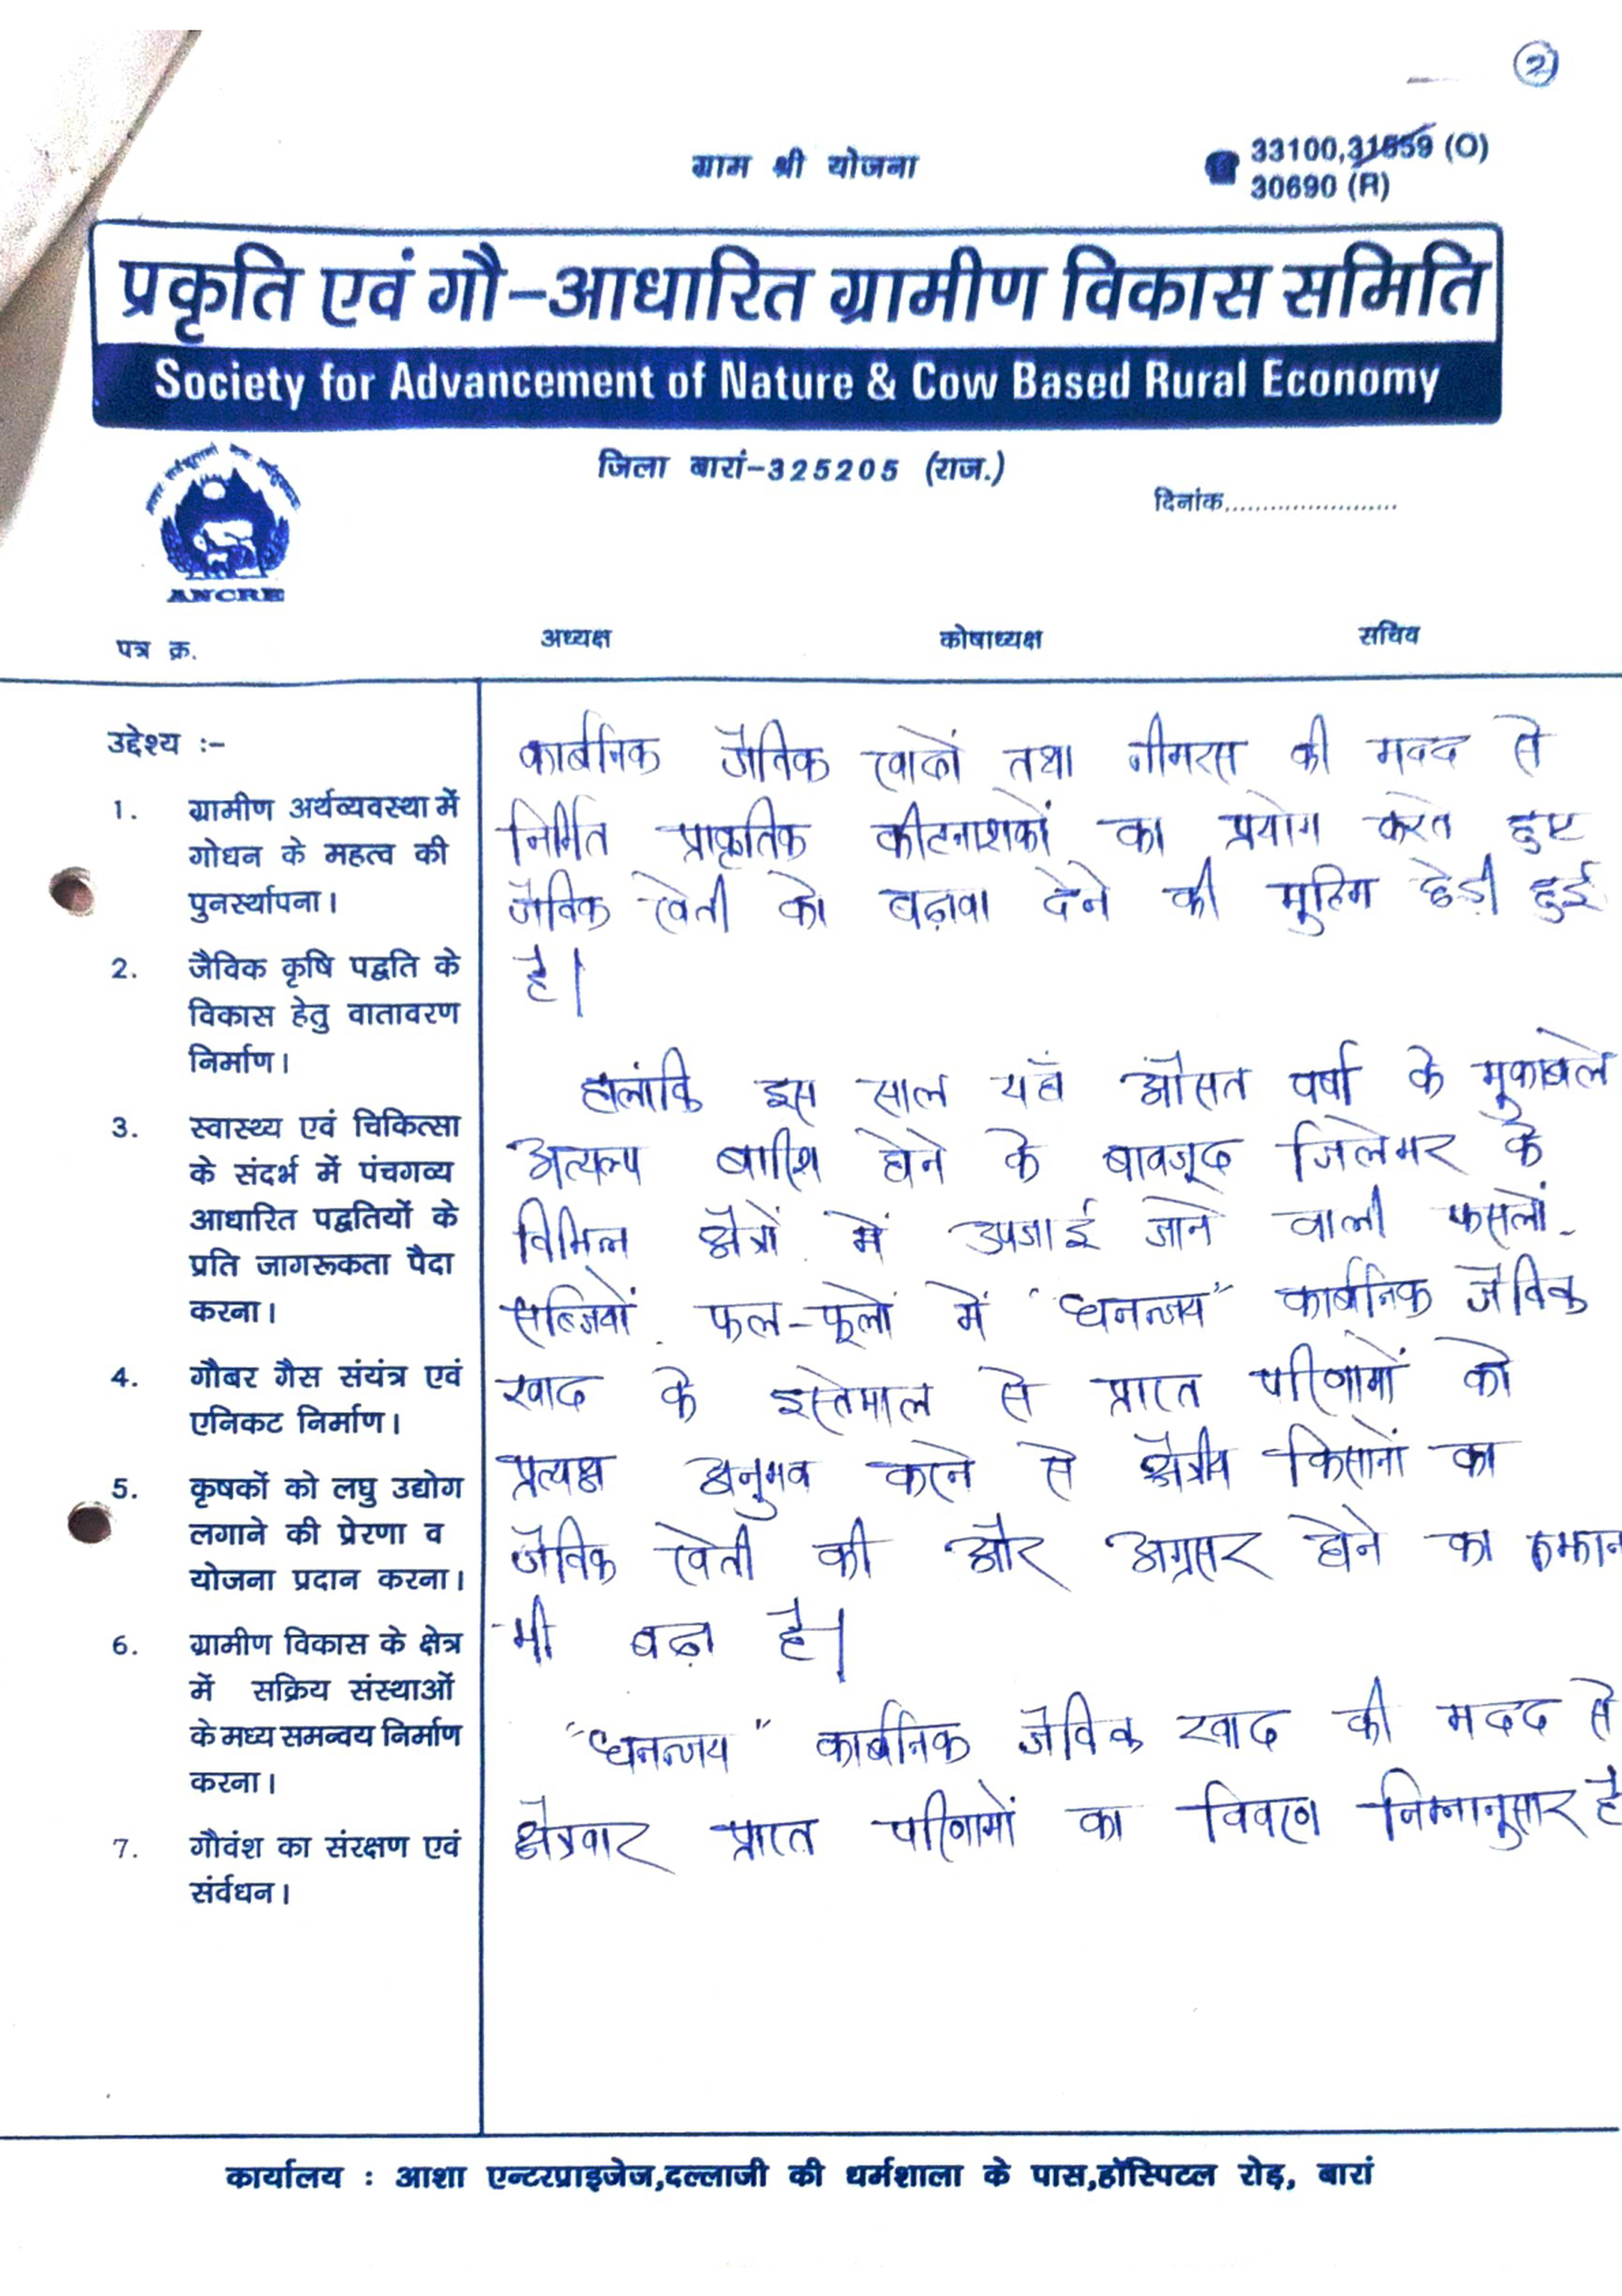 2
ग्राम श्री योजना
33100,31559 (O)
30690 (R)
प्रकृति एवं गौ-आधारित ग्रामीण विकास समिति
Society for Advancement of Nature & Cow Based Rural Economy
जिला बारां-325205 (राज.)
दिनांक.......................
ANCRE
पत्र क्र.
अध्यक्ष
कोषाध्यक्ष
सचिव
उद्देश्य :-
1. ग्रामीण अर्थव्यवस्था में
गोधन के महत्व की
पुनर्स्थापना।
2. जैविक कृषि पद्वति के
विकास हेतु वातावरण
निर्माण।
3. स्वास्थ्य एवं चिकित्सा
के संदर्भ में पंचगव्य
आधारित पद्वतियों के
प्रति जागरूकता पैदा
करना।
4. गौबर गैस संयंत्र एवं
एनिकट निर्माण।
5. कृषकों को लघु उद्योग
लगाने की प्रेरणा व
योजना प्रदान करना।
6. ग्रामीण विकास के क्षेत्र
में सक्रिय संस्थाओं
के मध्य समन्वय निर्माण
करना।
7. गौवंश का संरक्षण एवं
संर्वधन।
कार्बनिक जैविक खादों तथा नीमरस की मदद से
निर्मित प्राकृतिक कीटनाशकों का प्रयोग करते हुए
जैविक खेती को बढ़ावा देने की मुहिम छेड़ी हुई
है।
हालांकि इस साल यहाँ औसत वर्षा के मुकाबले
अत्यल्प बारिश होने के बावजूद जिलेभर के
विभिन्न क्षैत्रों में उपजाई जाने वाली फसलों
सब्जियों फल-फूलों में "धनन्जय" कार्बनिक जैविक
खाद के इस्तेमाल से प्राप्त परिणामों को
प्रत्यक्ष अनुभव करने से क्षैत्रीय किसानों का
जैविक खेती की और अग्रसर होने का रुझान
भी बढ़ा है।
"धनन्जय" कार्बनिक जैविक खाद की मदद से
क्षैत्रवार प्राप्त परिणामों का विवरण निम्नानुसार है
कार्यालय : आशा एन्टरप्राइजेज,दल्लाजी की धर्मशाला के पास,हॉस्पिटल रोड़, बारां